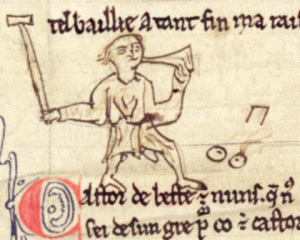 tel baillie A tant fin ma rai
Castor de beste ⁊ nuns. q̃ nͦ
sei de sun gre ꝑ co ⁊ castor